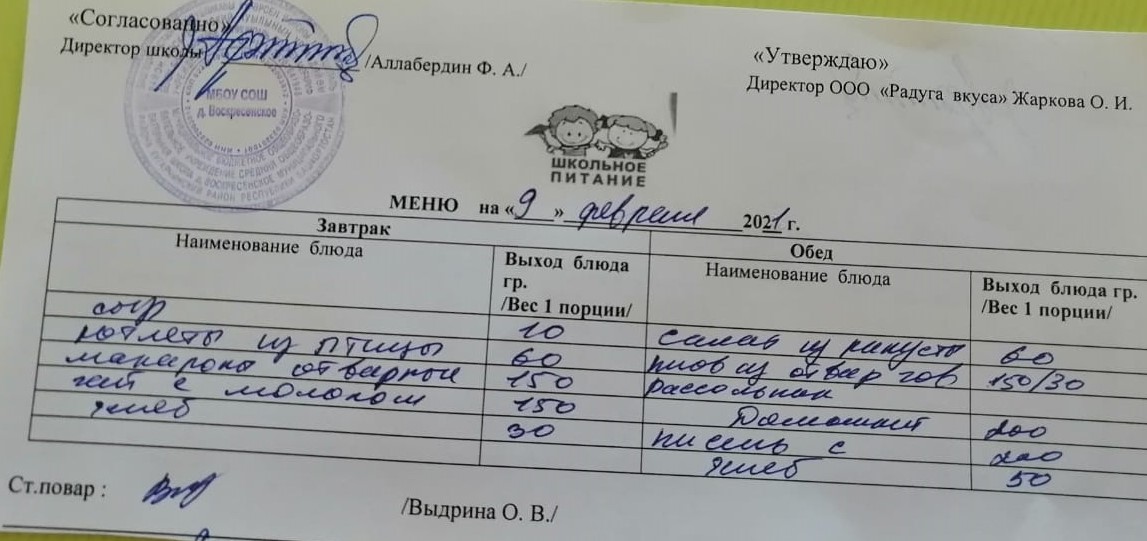 «Согласовано»
Директор школы /Аллабердин Ф. А./
«Утверждаю»
Директор ООО «Радуга вкуса» Жаркова О. И.
МБОУ СОШ
д. Воскресенское
ШКОЛЬНОЕ
ПИТАНИЕ
МЕНЮ на «9» февраля 2021 г.
Завтрак Обед
Наименование блюда Выход блюда гр. /Вес 1 порции/ Наименование блюда Выход блюда гр. /Вес 1 порции/
сыр 10 салат из капусты 60
котлеты из птицы 60 плов из отвар гов 150/30
макароны отварные 150 рассольник
чай с молоком 150 Домашний 200
хлеб 30 кисель с 200
хлеб 50
Ст.повар : /Выдрина О. В./